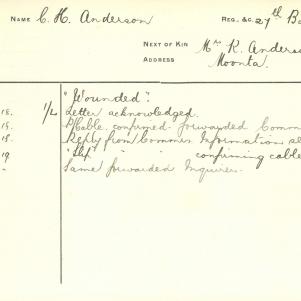 NAME C. H. Anderson
REG. &C. 27th Ba
NEXT OF KIN Mrs K. Anders
ADDRESS Moonta.
"Wounded".
18. 1/L Letter acknowledged.
18. P/Cable confirmed. forwarded Comm
18. Reply from Commrs. Information se
19 " " confirming cable
Same forwarded Inquirer.